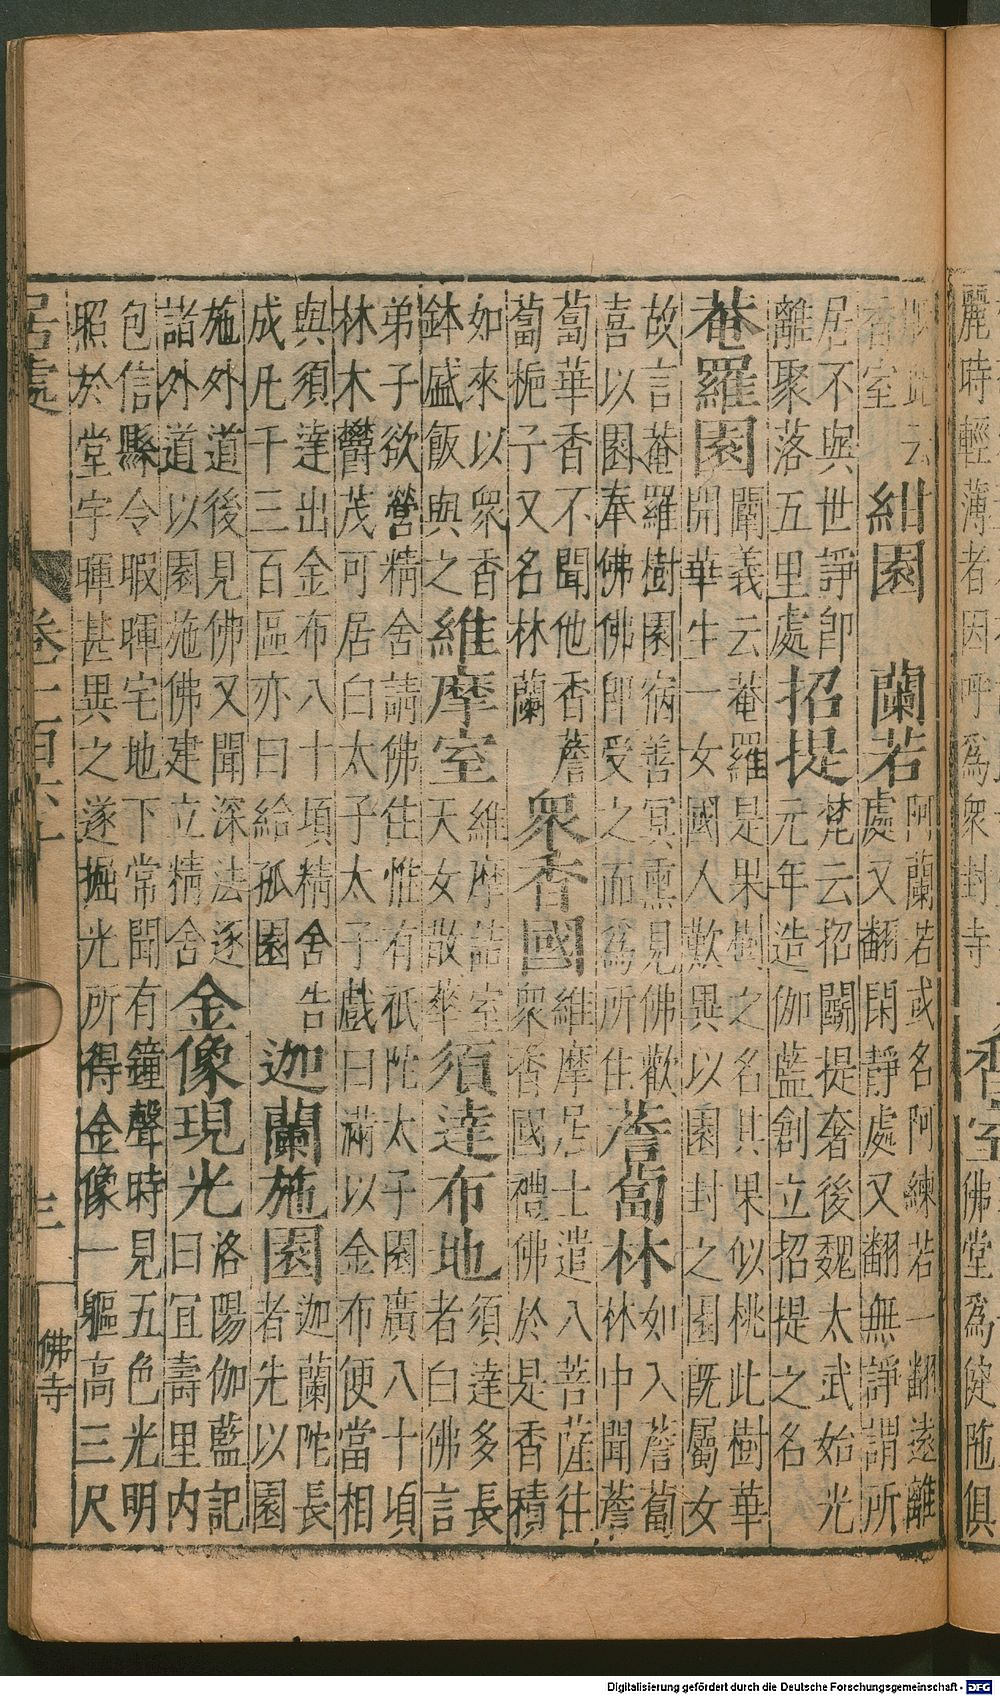 麗時輕薄者因呼爲衆封寺
香室
佛堂爲健陁俱
此云
香室
紺園 蘭若
阿蘭若或名阿練若一翻遠離
處又翻閑靜處又翻無諍謂所
居不與世諍卽
離聚落五里處
招提
梵云招鬭提奢後魏太武始光
元年造伽藍創立招提之名
菴羅園
闡義云菴羅是果樹之名其果似桃此樹華
開華生一女國人歎異以園封之園旣屬女
故言菴羅樹園宿善冥熏見佛歡
喜以園奉佛佛卽受之而爲所住
薝蔔林
如入薝蔔
林中聞薝
蔔華香不聞他香薝
蔔梔子又名林蘭
衆香國
維摩居士遣八菩薩往
衆香國禮佛於是香積
如來以衆香
鉢盛飯與之
維摩室
維摩詰室
天女散華
須達布地
須達多長
者白佛言
弟子欲營精舍請佛住惟有祇陀太子園廣八十頃
林木鬱茂可居白太子太子戲曰滿以金布便當相
與須達出金布八十頃精舍告
成凡千三百區亦曰給孤園
迦蘭施園
迦蘭陀長
者先以園
施外道後見佛又聞深法逐
諸外道以園施佛建立精舍
金像現光
洛陽伽藍記
曰宜壽里内
包信縣令暇暉宅地下常聞有鐘聲時見五色光明
照於堂宇暉甚異之遂掘光所得金像一軀高三尺
居處 卷一百六十 三 佛寺
Digitalisierung gefördert durch die Deutsche Forschungsgemeinschaft - DFG